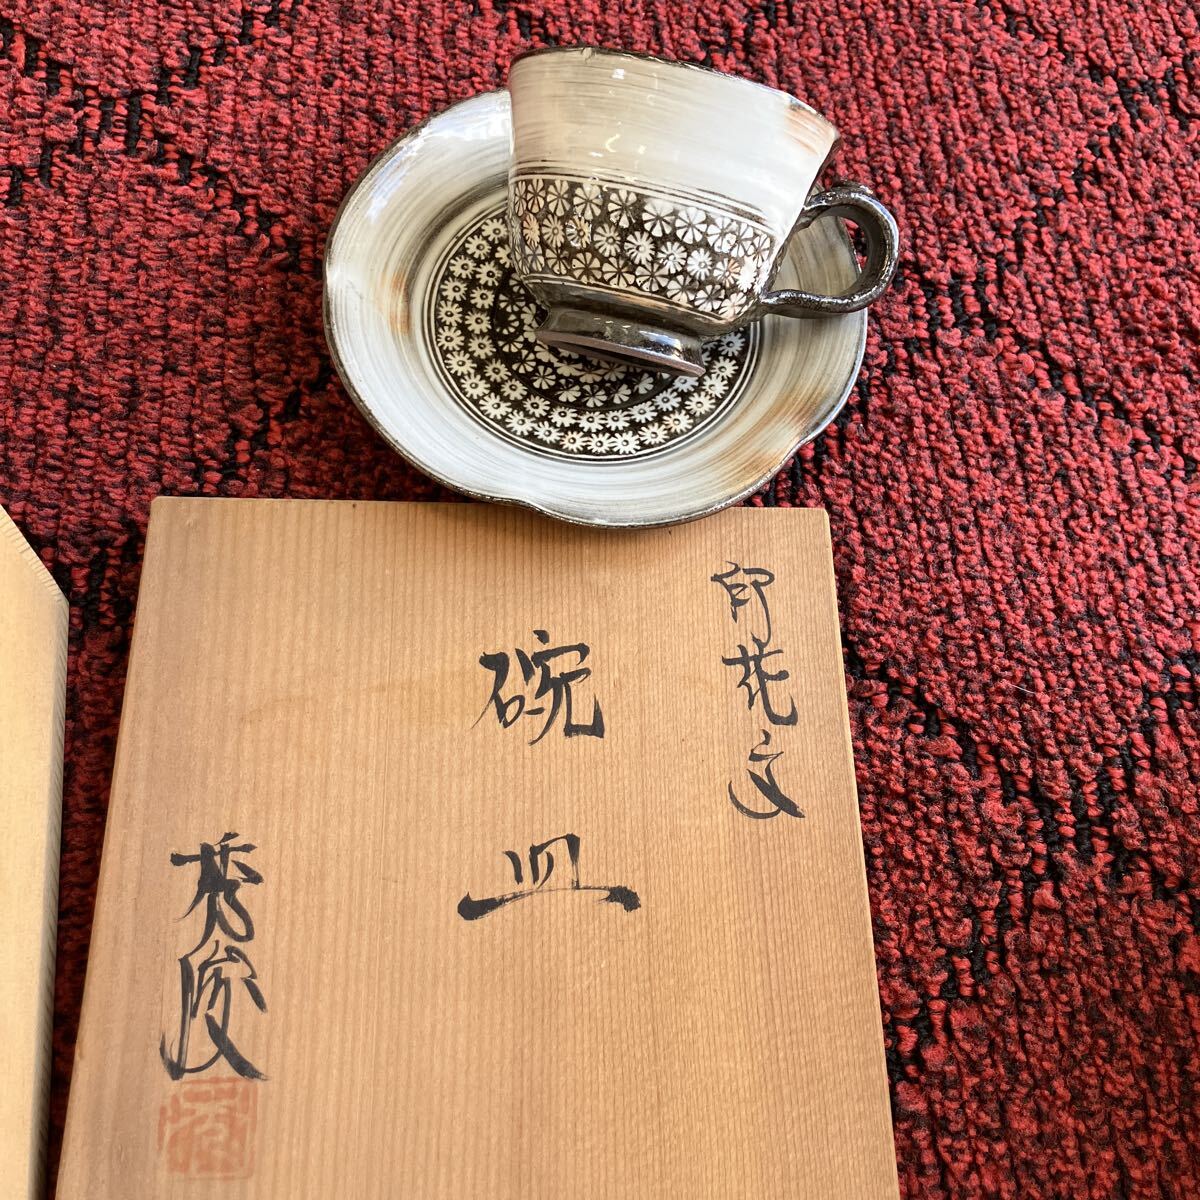 印花文
碗皿
秀俊